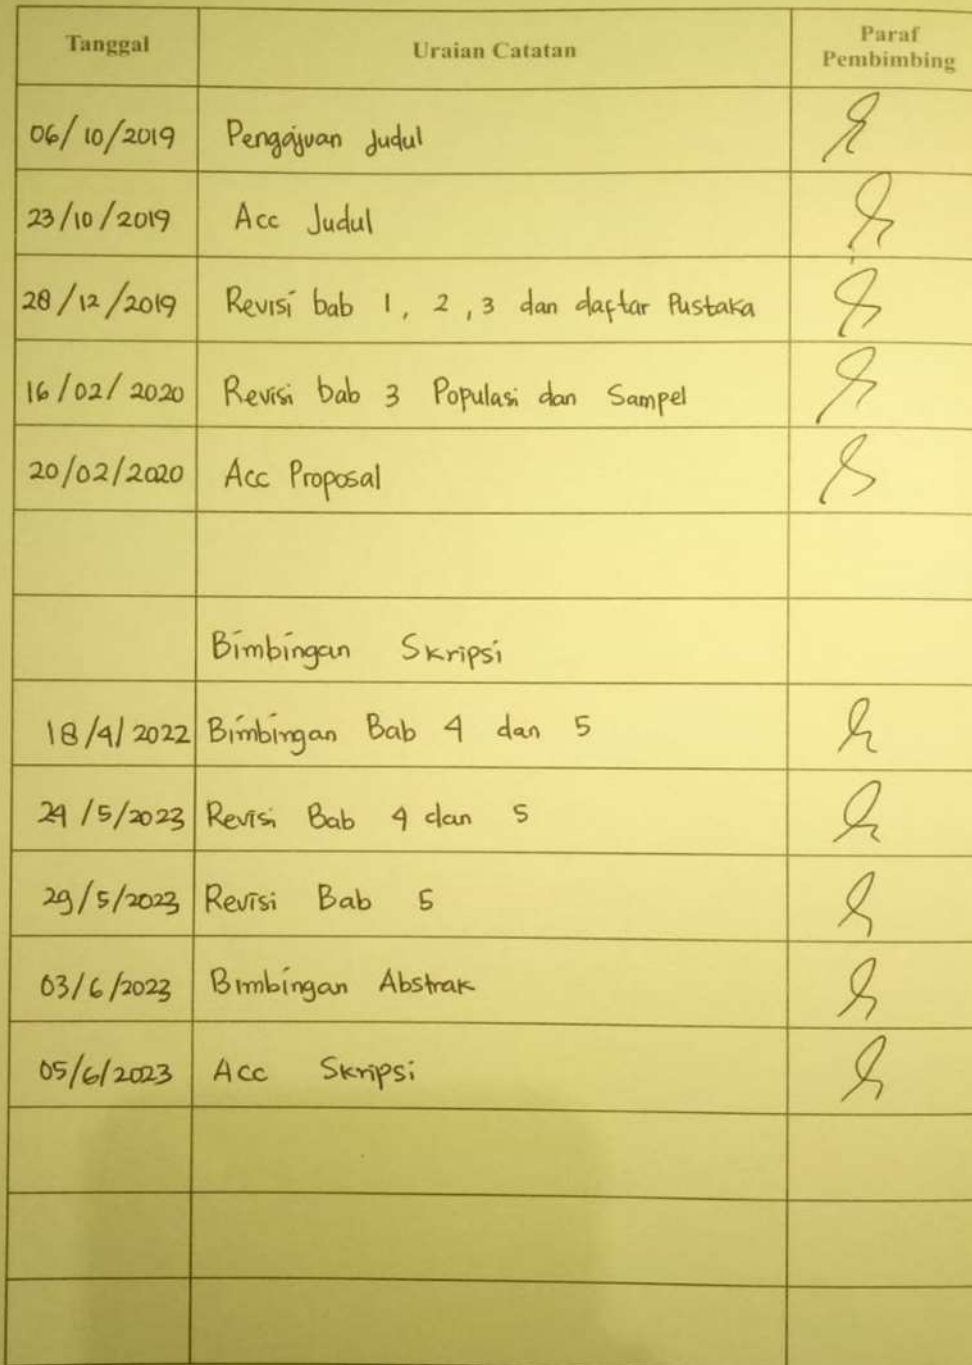 Tanggal Uraian Catatan Paraf Pembimbing
06/10/2019 Pengajuan Judul
23/10/2019 Acc Judul
28/12/2019 Revisi bab 1, 2, 3 dan daftar Pustaka
16/02/2020 Revisi bab 3 Populasi dan Sampel
20/02/2020 Acc Proposal
Bimbingan Skripsi
18/4/2022 Bimbingan Bab 4 dan 5
24/5/2023 Revisi Bab 4 dan 5
29/5/2023 Revisi Bab 5
03/6/2023 Bimbingan Abstrak
05/6/2023 Acc Skripsi